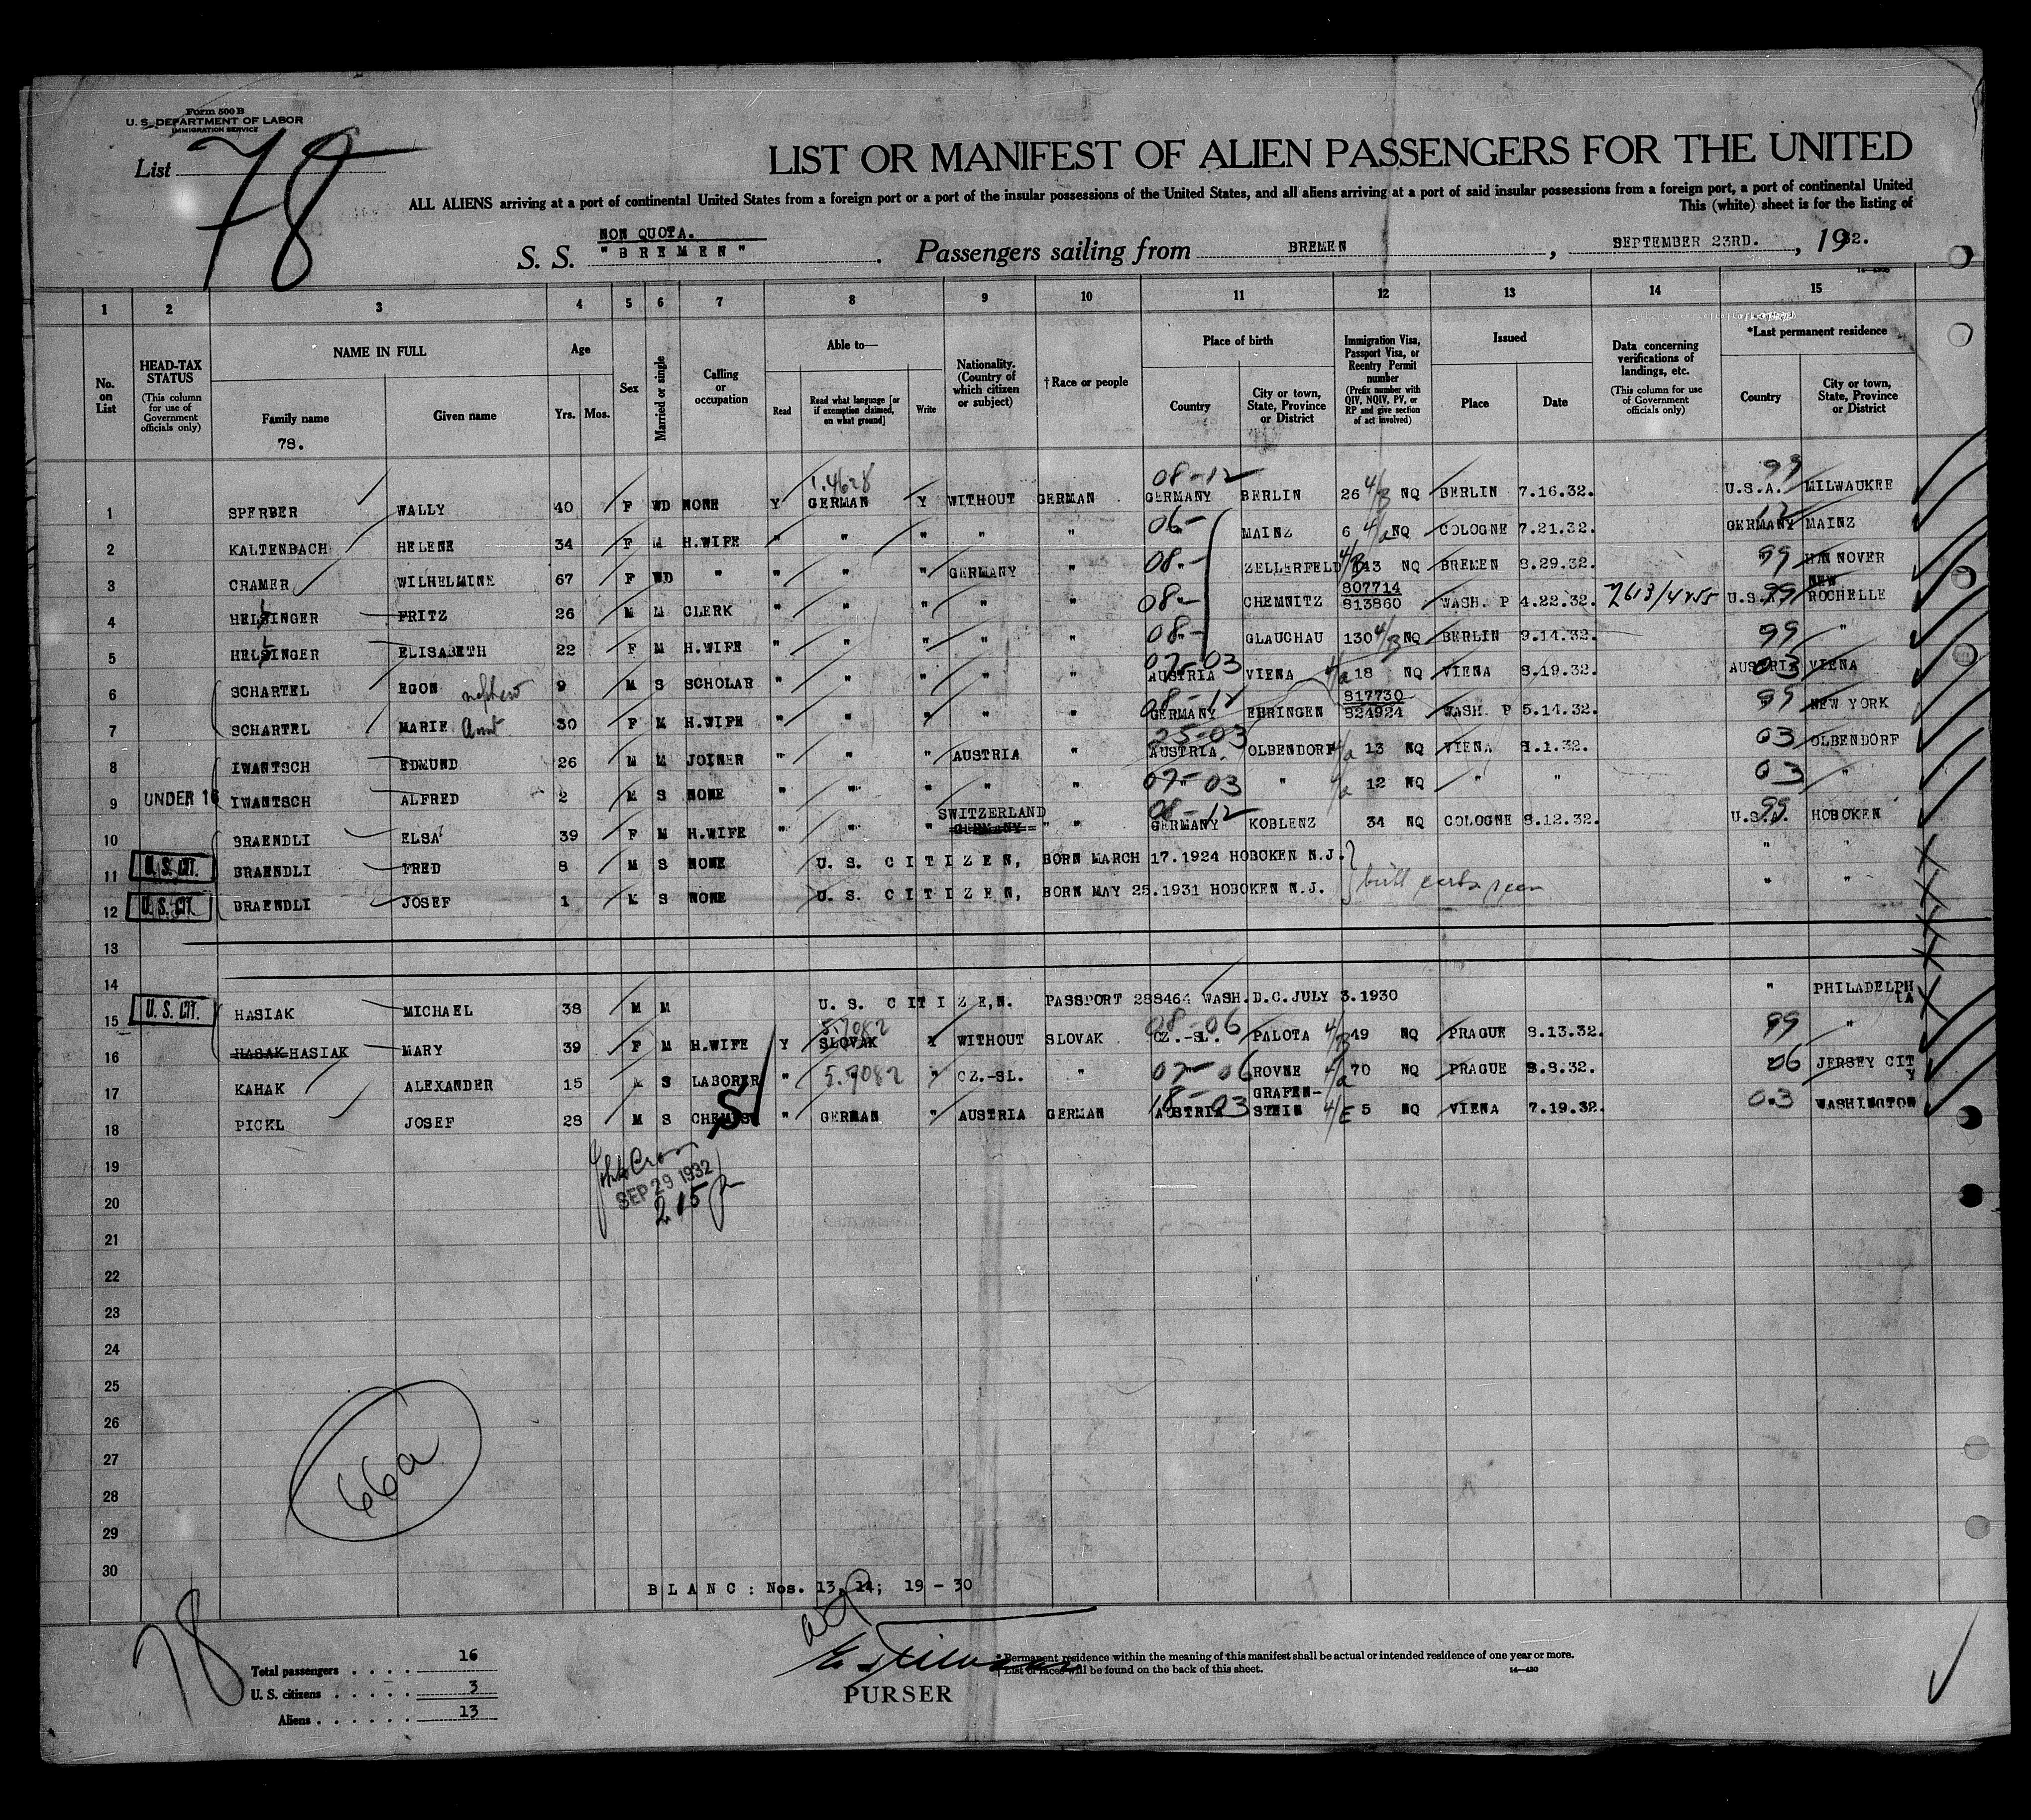 Form 500 B
U. S. DEPARTMENT OF LABOR
IMMIGRATION SERVICE
List 78
LIST OR MANIFEST OF ALIEN PASSENGERS FOR THE UNITED
ALL ALIENS arriving at a port of continental United States from a foreign port or a port of the insular possessions of the United States, and all aliens arriving at a port of said insular possessions from a foreign port, a port of continental United
This (white) sheet is for the listing of
NON QUOTA.
S. S. "BREMEN". Passengers sailing from BREMEN, SEPTEMBER 23RD., 1932.
1 2 3 4 5 6 7 8 9 10 11 12 13 14 15
No. on List
HEAD-TAX STATUS (This column for use of Government officials only)
NAME IN FULL
Family name
Given name
78.
Age
Yrs. Mos.
Sex
Married or single
Calling or occupation
Able to—
Read
Read what language [or if exemption claimed, on what ground]
Write
Nationality. (Country of which citizen or subject)
†Race or people
Place of birth
Country
City or town, State, Province or District
Immigration Visa, Passport Visa, or Reentry Permit number (Prefix number with QIV, NQIV, PV, or RP and give section of act involved)
Issued
Place
Date
Data concerning verifications of landings, etc. (This column for use of Government officials only)
*Last permanent residence
Country
City or town, State, Province or District
1.4628 08-12 99
1 SPERBER WALLY 40 F WD NONE Y GERMAN Y WITHOUT GERMAN GERMANY BERLIN 26 4/B NQ BERLIN 7.16.32. U.S.A. MILWAUKEE
2 KALTENBACH HELENE 34 F M H.WIFE " " " " " 06- MAINZ 6 4/a NQ COLOGNE 7.21.32. GERMANY 12 MAINZ
3 CRAMER WILHELMINE 67 F WD " " " " GERMANY " 08- ZELLERFELD 4/B 143 NQ BREMEN 8.29.32. 99 HANNOVER
4 HELSINGER FRITZ 26 M M CLERK " " " " " 08- CHEMNITZ 807714 813860 WASH. P 4.22.32. U.S.A. 99 NEW ROCHELLE
5 HELSINGER ELISABETH 22 F M H.WIFE " " " " " 08- GLAUCHAU 130 4/B NQ BERLIN 9.14.32. 99 "
6 SCHARTEL EGON nephew 9 M S SCHOLAR " " " " " 07-03 AUSTRIA VIENA 4/a 18 NQ VIENA 8.19.32. AUSTRIA 03 VIENA
7 SCHARTEL MARIE Aunt 30 F M H.WIFE " " " " " 08-12 GERMANY EHRINGEN 817730 824924 WASH. P 5.14.32. 99 NEW YORK
8 IWANTSCH EDMUND 26 M M JOINER " " " AUSTRIA " 25-03 AUSTRIA OLBENDORF 4/a 13 NQ VIENA 8.1.32. 03 OLBENDORF
9 UNDER 16 IWANTSCH ALFRED 2 M S NONE " " " " " 07-03 " 4/a 12 NQ " " 03 "
10 BRAENDLI ELSA 39 F M H.WIFE " " " SWITZERLAND GERMANY " " 08-12 GERMANY KOBLENZ 34 NQ COLOGNE 8.12.32. U.S.A. 99 HOBOKEN
11 U. S. CIT. BRAENDLI FRED 8 M S NONE U. S. CITIZEN, BORN MARCH 17.1924 HOBOKEN N.J. " "
12 U. S. CIT. BRAENDLI JOSEF 1 M S NONE U. S. CITIZEN, BORN MAY 25.1931 HOBOKEN N.J. " "
13
14
15 U. S. CIT. HASIAK MICHAEL 38 M M U. S. CITIZEN. PASSPORT 288464 WASH.D.C.JULY 3.1930 " PHILADELPHIA
16 HASAK HASIAK MARY 39 F M H.WIFE Y 5.7082 SLOVAK Y WITHOUT SLOVAK 08-06 CZ.-SL. PALOTA 4/B 49 NQ PRAGUE 8.13.32. 99 "
17 KAHAK ALEXANDER 15 M S LABORER " 5.7082 " CZ.-SL. " 07-06 ROVNE 4/a 70 NQ PRAGUE 8.8.32. 06 JERSEY CITY
18 PICKL JOSEF 28 M S CHEMIST " GERMAN " AUSTRIA GERMAN 18-03 AUSTRIA GRAFENSTEIN 4/E 5 NQ VIENA 7.19.32. 03 WASHINGTON
19
SEP 29 1932
20
215
21
22
23
24
25
26
27
66a
28
29
30
BLANC: Nos. 13, 14; 19 - 30
78
Total passengers . . . . 16
U. S. citizens . . . . . 3
Aliens . . . . . . 13
PURSER
*Permanent residence within the meaning of this manifest shall be actual or intended residence of one year or more.
†List of races will be found on the back of this sheet.
14—430